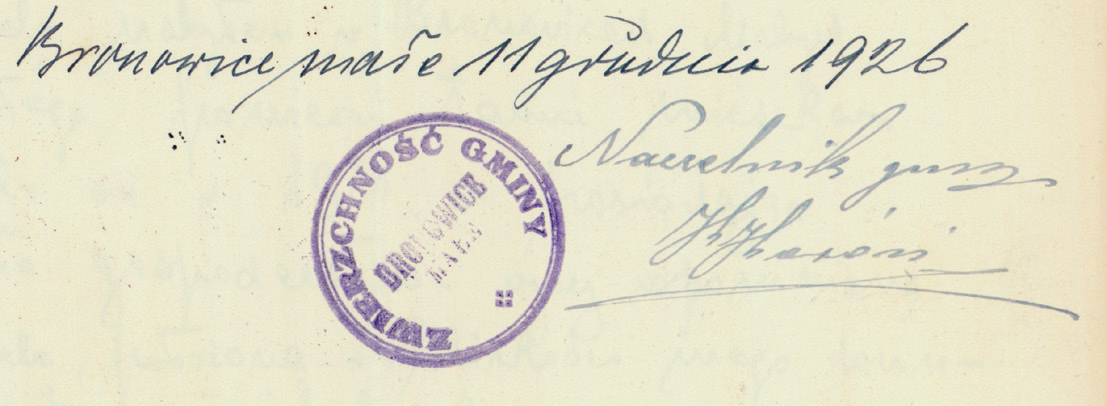 Bronowice małe 11 grudnia 1926
ZWIERZCHNOŚĆ GMINY
BRONOWICE
MAŁE
Naczelnik gminy